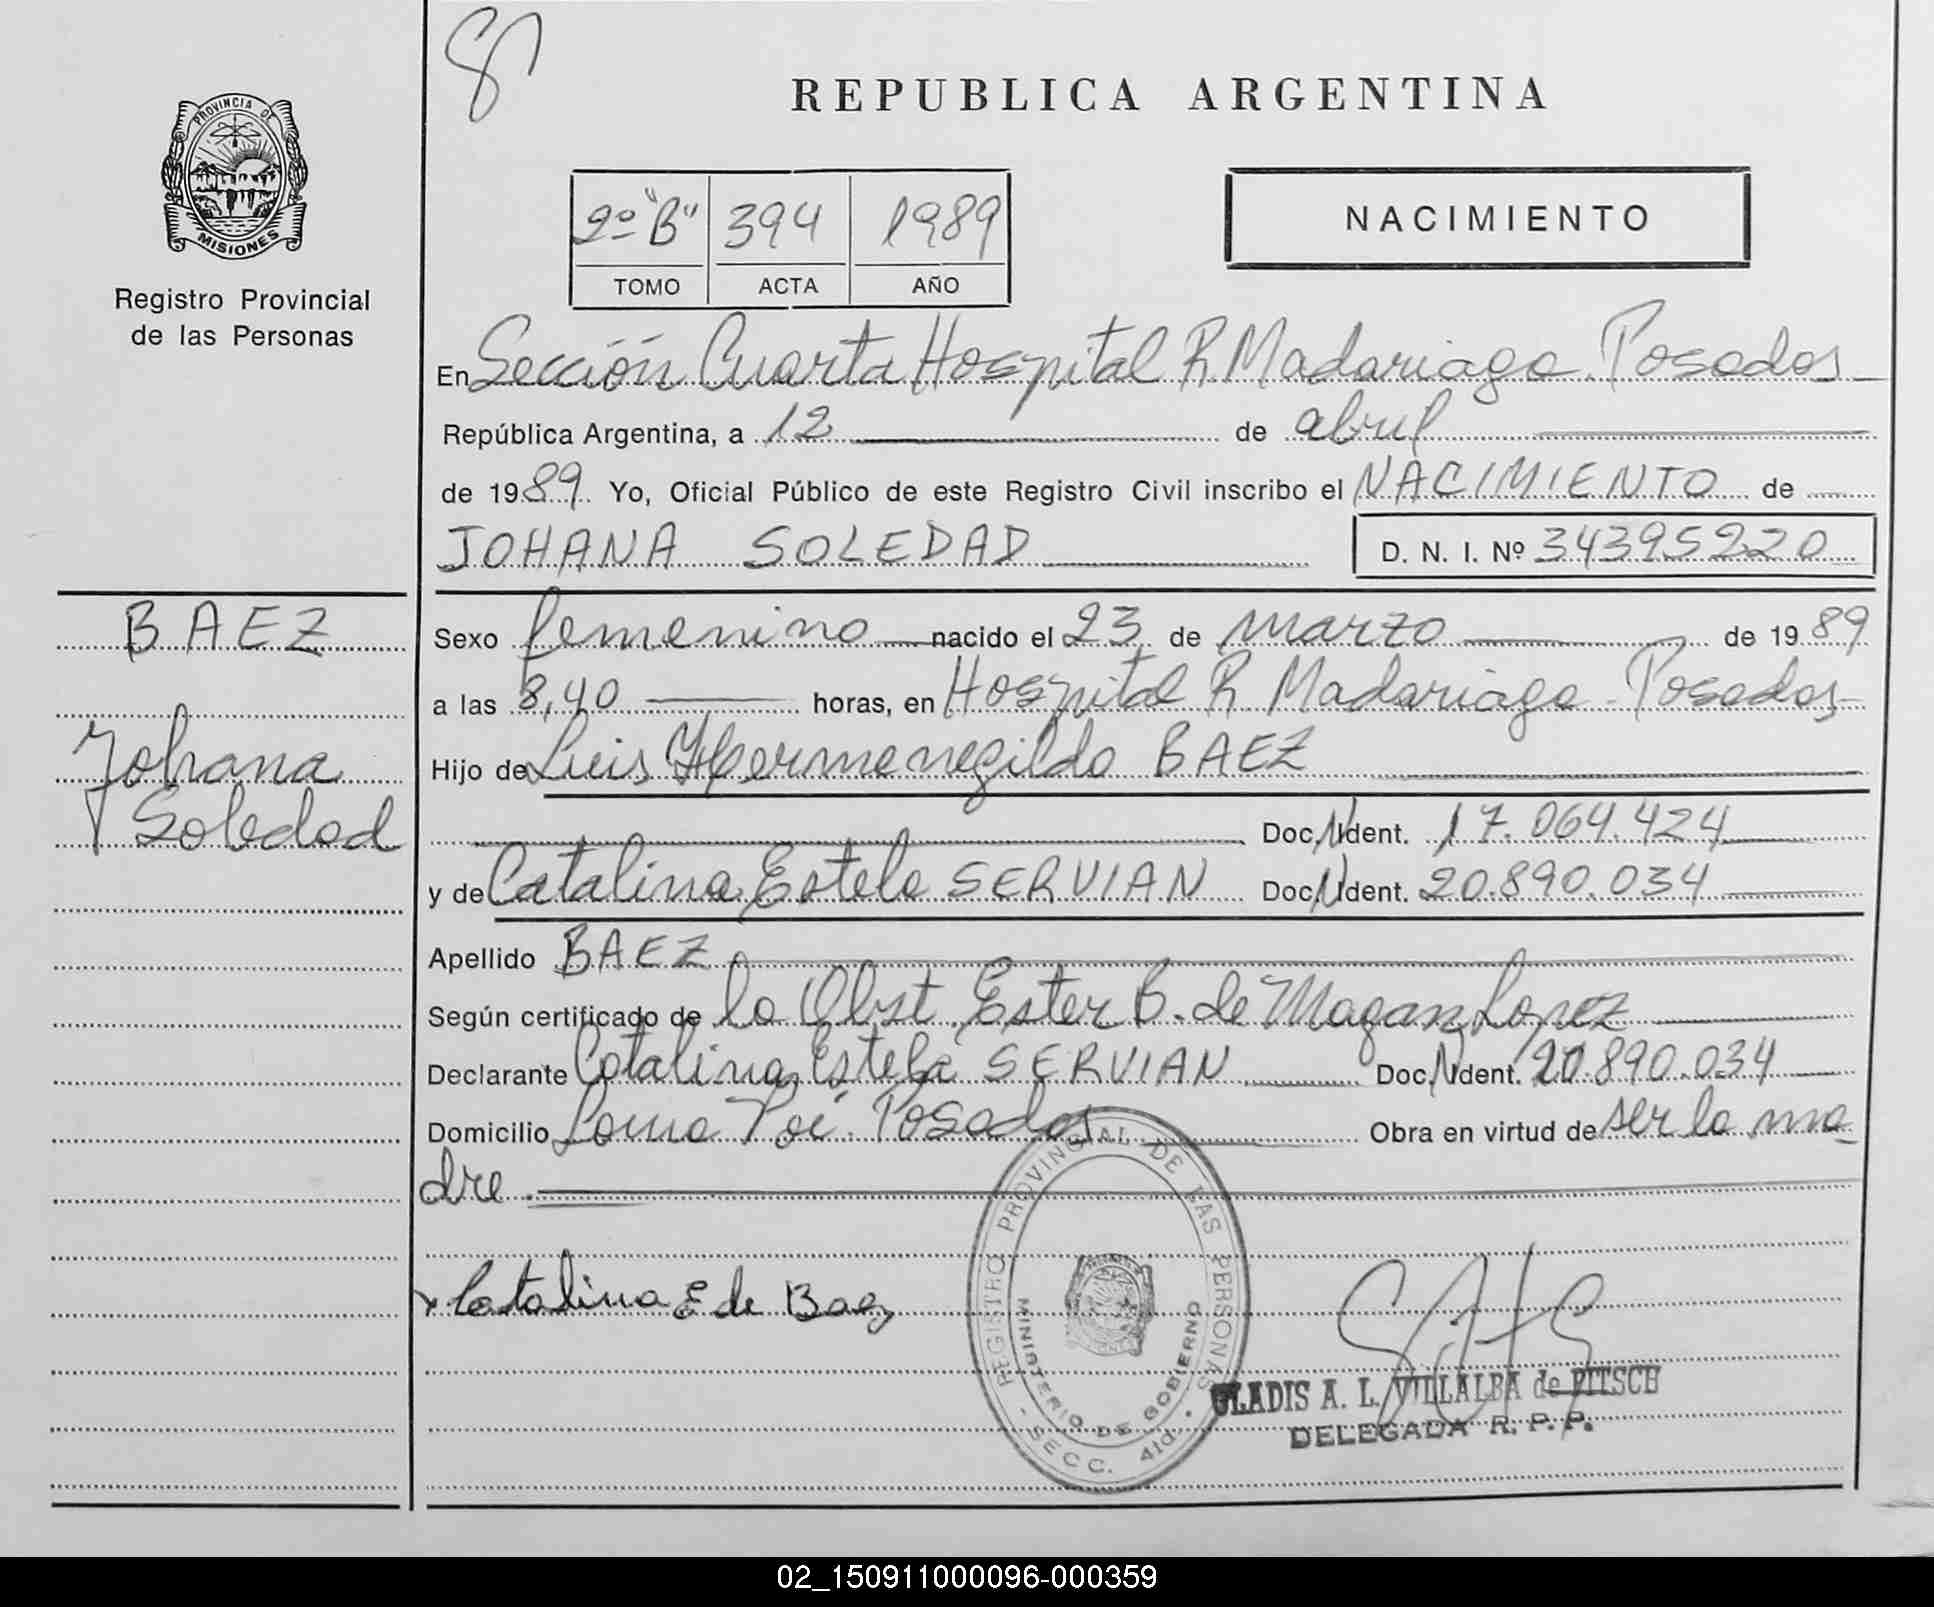 REPUBLICA ARGENTINA
PROVINCIA DE
MISIONES
Registro Provincial
de las Personas
2º "B" 394 1989
TOMO ACTA AÑO
NACIMIENTO
En Sección Cuarta Hospital R. Madariaga. Posadas
República Argentina, a 12 de abril
de 1989. Yo, Oficial Público de este Registro Civil inscribo el NACIMIENTO de
JOHANA SOLEDAD
D. N. I. Nº 34395220
BAEZ
Johana
Soledad
Sexo femenino nacido el 23 de marzo de 1989
a las 8,40 horas, en Hospital R. Madariaga - Posadas
Hijo de Luis Hermenegildo BAEZ
Doc. N Ident. 17.064.424
y de Catalina Estela SERVIAN Doc. N Ident. 20.890.034
Apellido BAEZ
Según certificado de la Obst. Ester B. de Magan Lopez
Declarante Catalina Estela SERVIAN Doc. N Ident. 20.890.034
Domicilio Loma Poi. Posadas Obra en virtud de ser la ma
dre.
Catalina E de Baez
REGISTRO PROVINCIAL DE LAS PERSONAS
MINISTERIO DE GOBIERNO
- SECC. 4ta. -
GLADIS A. L. VILLALBA de PITSCH
DELEGADA R. P. P.
02_150911000096-000359